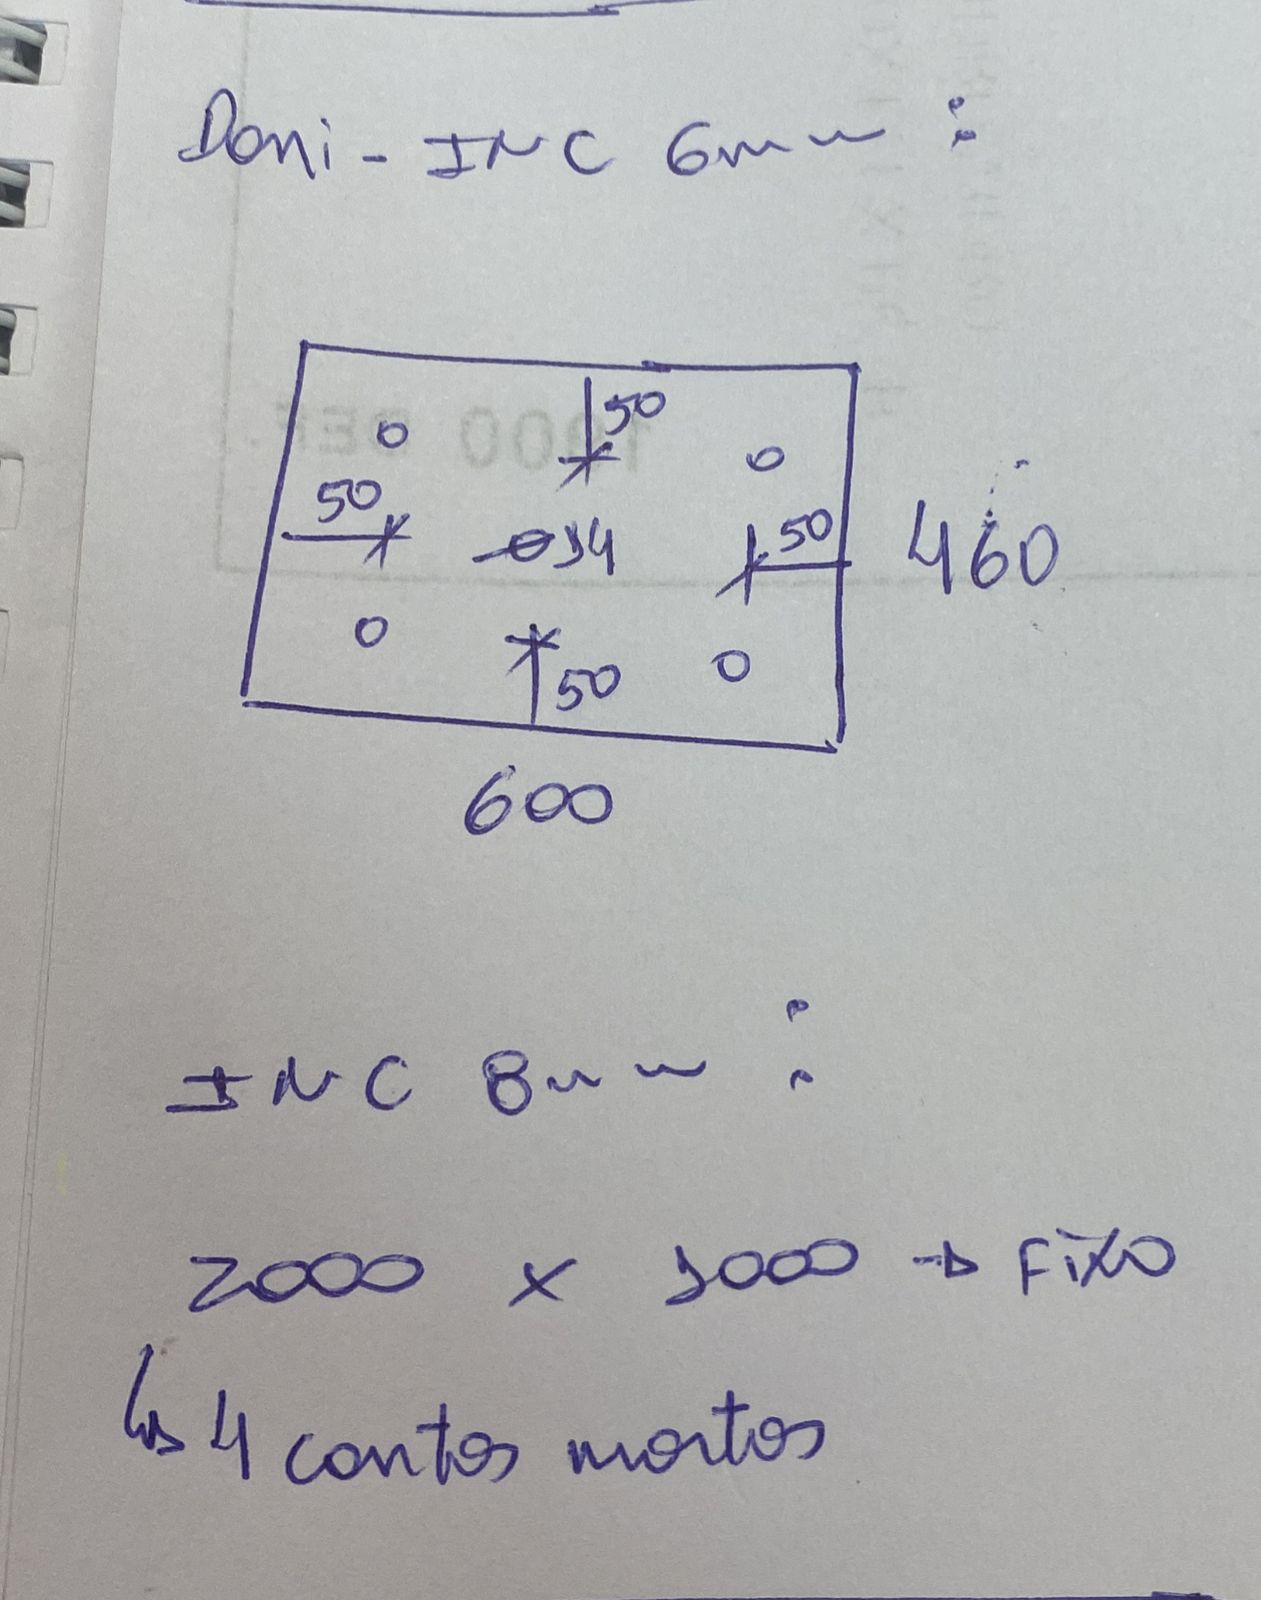 Dani - INC 6mm :
50
50
Ø14
50
460
50
600
INC 8mm :
2000 x 1000 → Fixo
↳ 4 cantos mortos